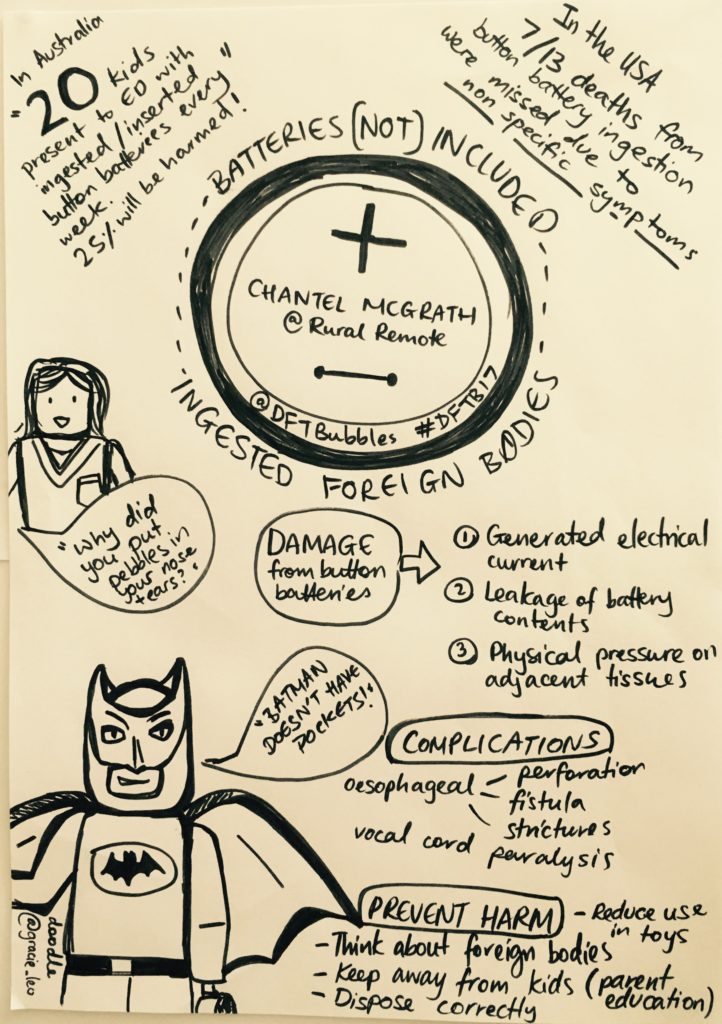 In Australia
"20 kids
present to ED with
ingested/inserted
button batterees every
week."
25% will be harmed!
In the USA
7/13 deaths from
button battery ingestion
were missed due to
non specific symptoms
BATTERIES (NOT) INCLUDED
+
CHANTEL MCGRATH
@ Rural Remote
-
@DFTBubbles #DFTB17
INGESTED FOREIGN BODIES
"Why did
you put
pebbles in
your nose
+ears?"
DAMAGE
from button
batteries
① Generated electrical
current
② Leakage of battery
contents
③ Physical pressure on
adjacent tissues
"BATMAN
DOESN'T HAVE
POCKETS!"
COMPLICATIONS
oesophageal - perforation
- fistula
- strictures
vocal cord paralysis
PREVENT HARM - Reduce use
in toys
- Think about foreign bodies
- Keep away from kids (parent
education)
- Dispose correctly
doodle
@gracie_leo